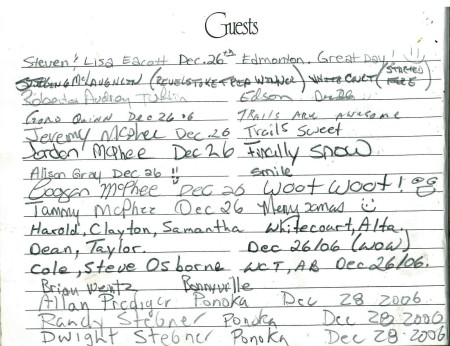 Guests
Steven & Lisa Eacott Dec. 26th Edmonton. Great Day!
McLaughlin (Revelstoke Winner) (Started
Roberta Audrey Edson Dec 26
Gord Quinn Dec 26 06 Trails are awesome
Jeremy McPhee Dec 26 Trails Sweet
Jordon McPhee Dec 26 Finally snow
Alison Gray Dec 26 !! smile
Logan McPhee Dec 26 woot woot!
Tammy McPhee Dec 26 Merry xmas
Harold, Clayton, Samantha Whitecourt, Alta.
Dean, Taylor. Dec 26/06 (wow)
Cole, Steve Osborne WCT, AB Dec 26/06.
Brian Wentz Bonnyville
Allan Prediger Ponoka Dec 28 2006
Randy Stebner Ponoka Dec 28 2006
Dwight Stebner Ponoka Dec 28 2006